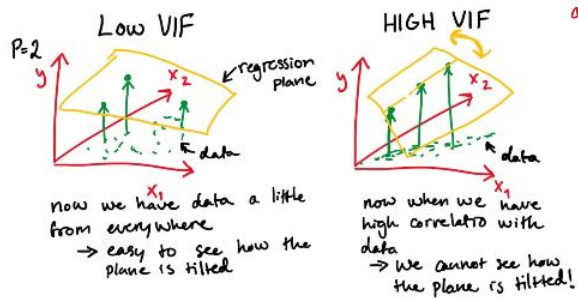 LOW VIF
P=2
y
x₂
regression
plane
data
x₁
now we have data a little
from everywhere
→ easy to see how the
plane is tilted
HIGH VIF
y
x₂
data
x₁
now when we have
high correlatio with
data
→ we cannot see how
the plane is tiltted!